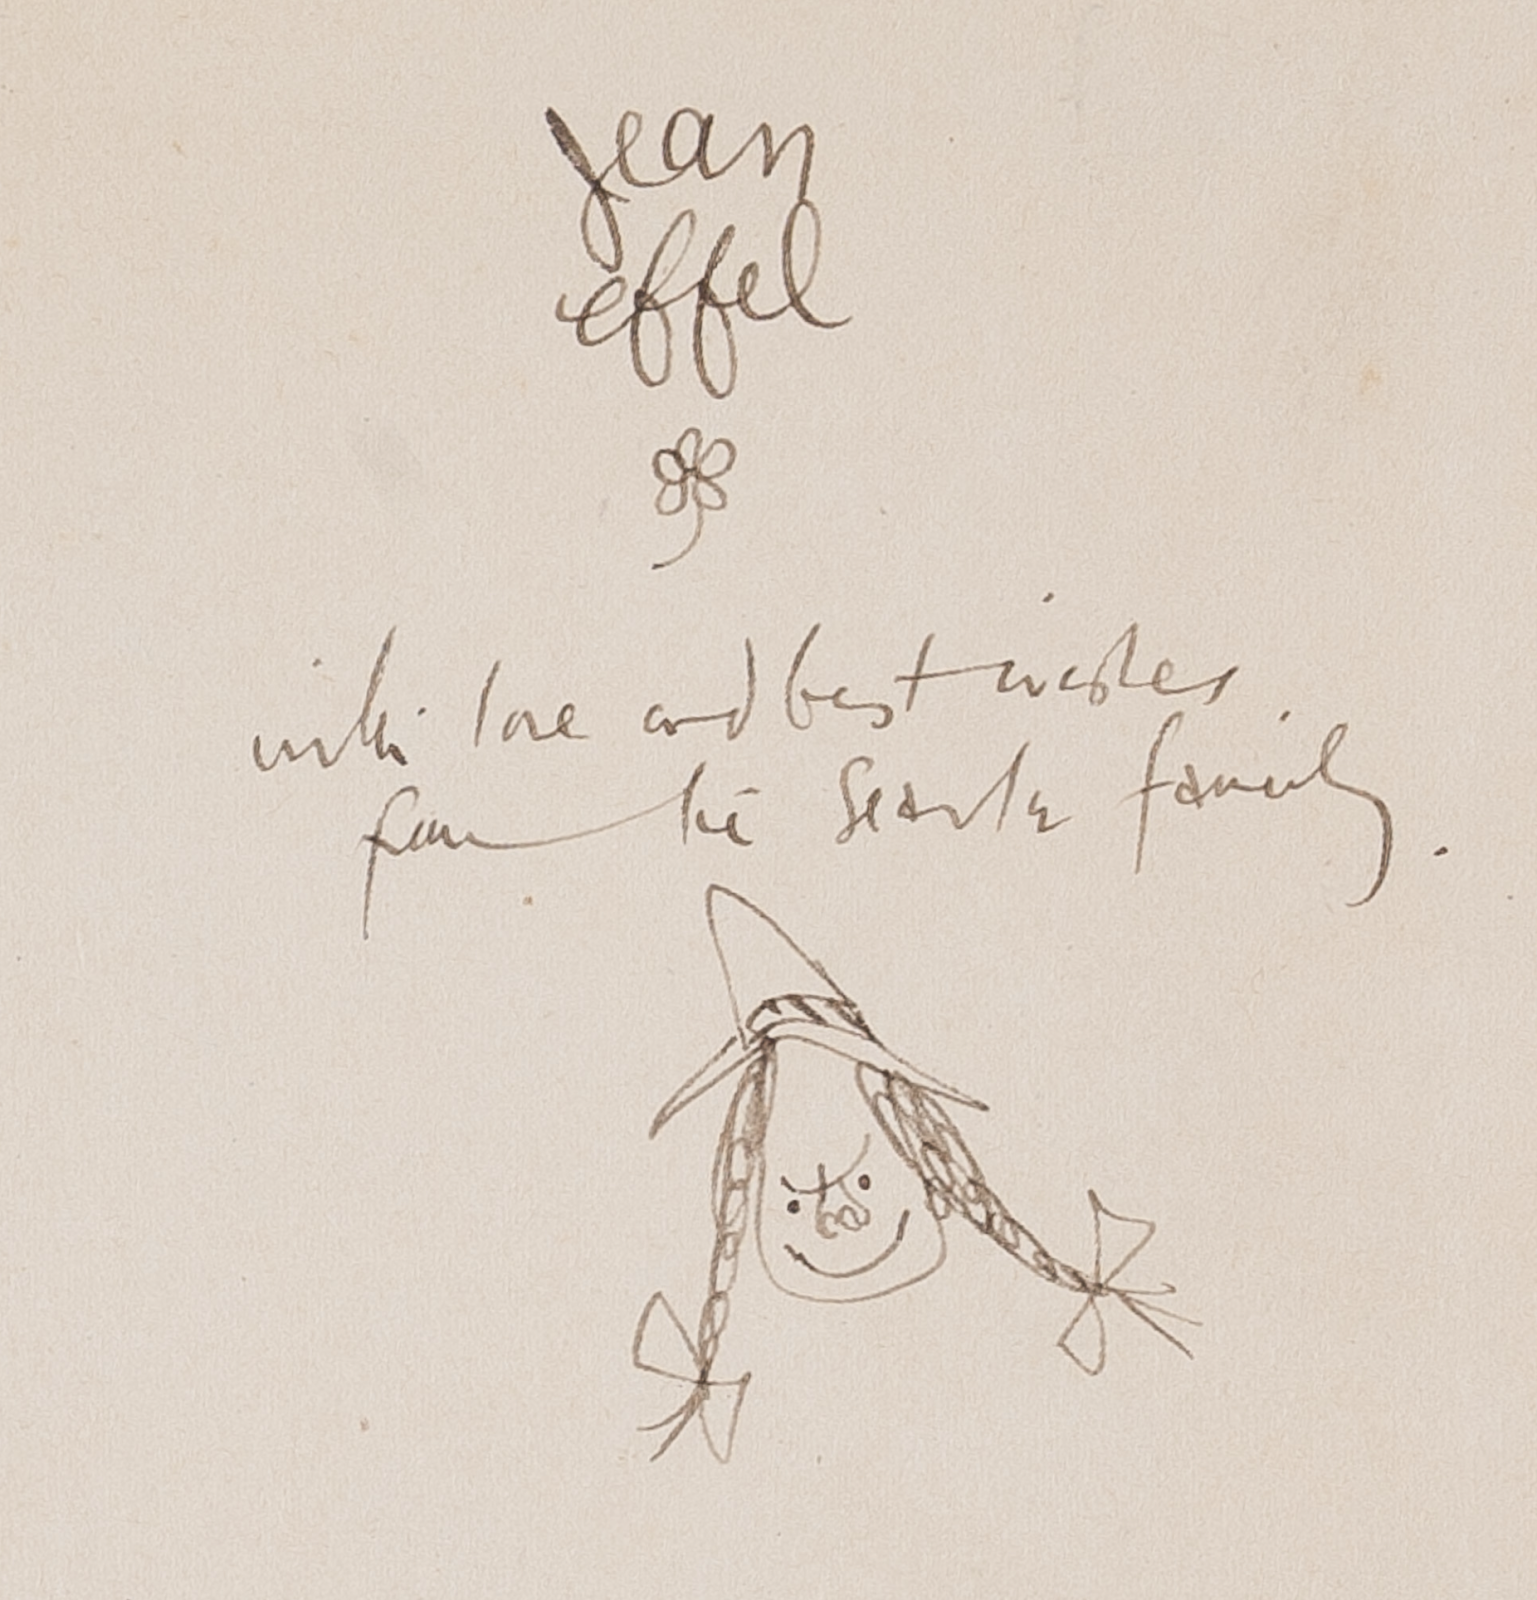 jean
effel
with love and best wishes
from the Searle family.